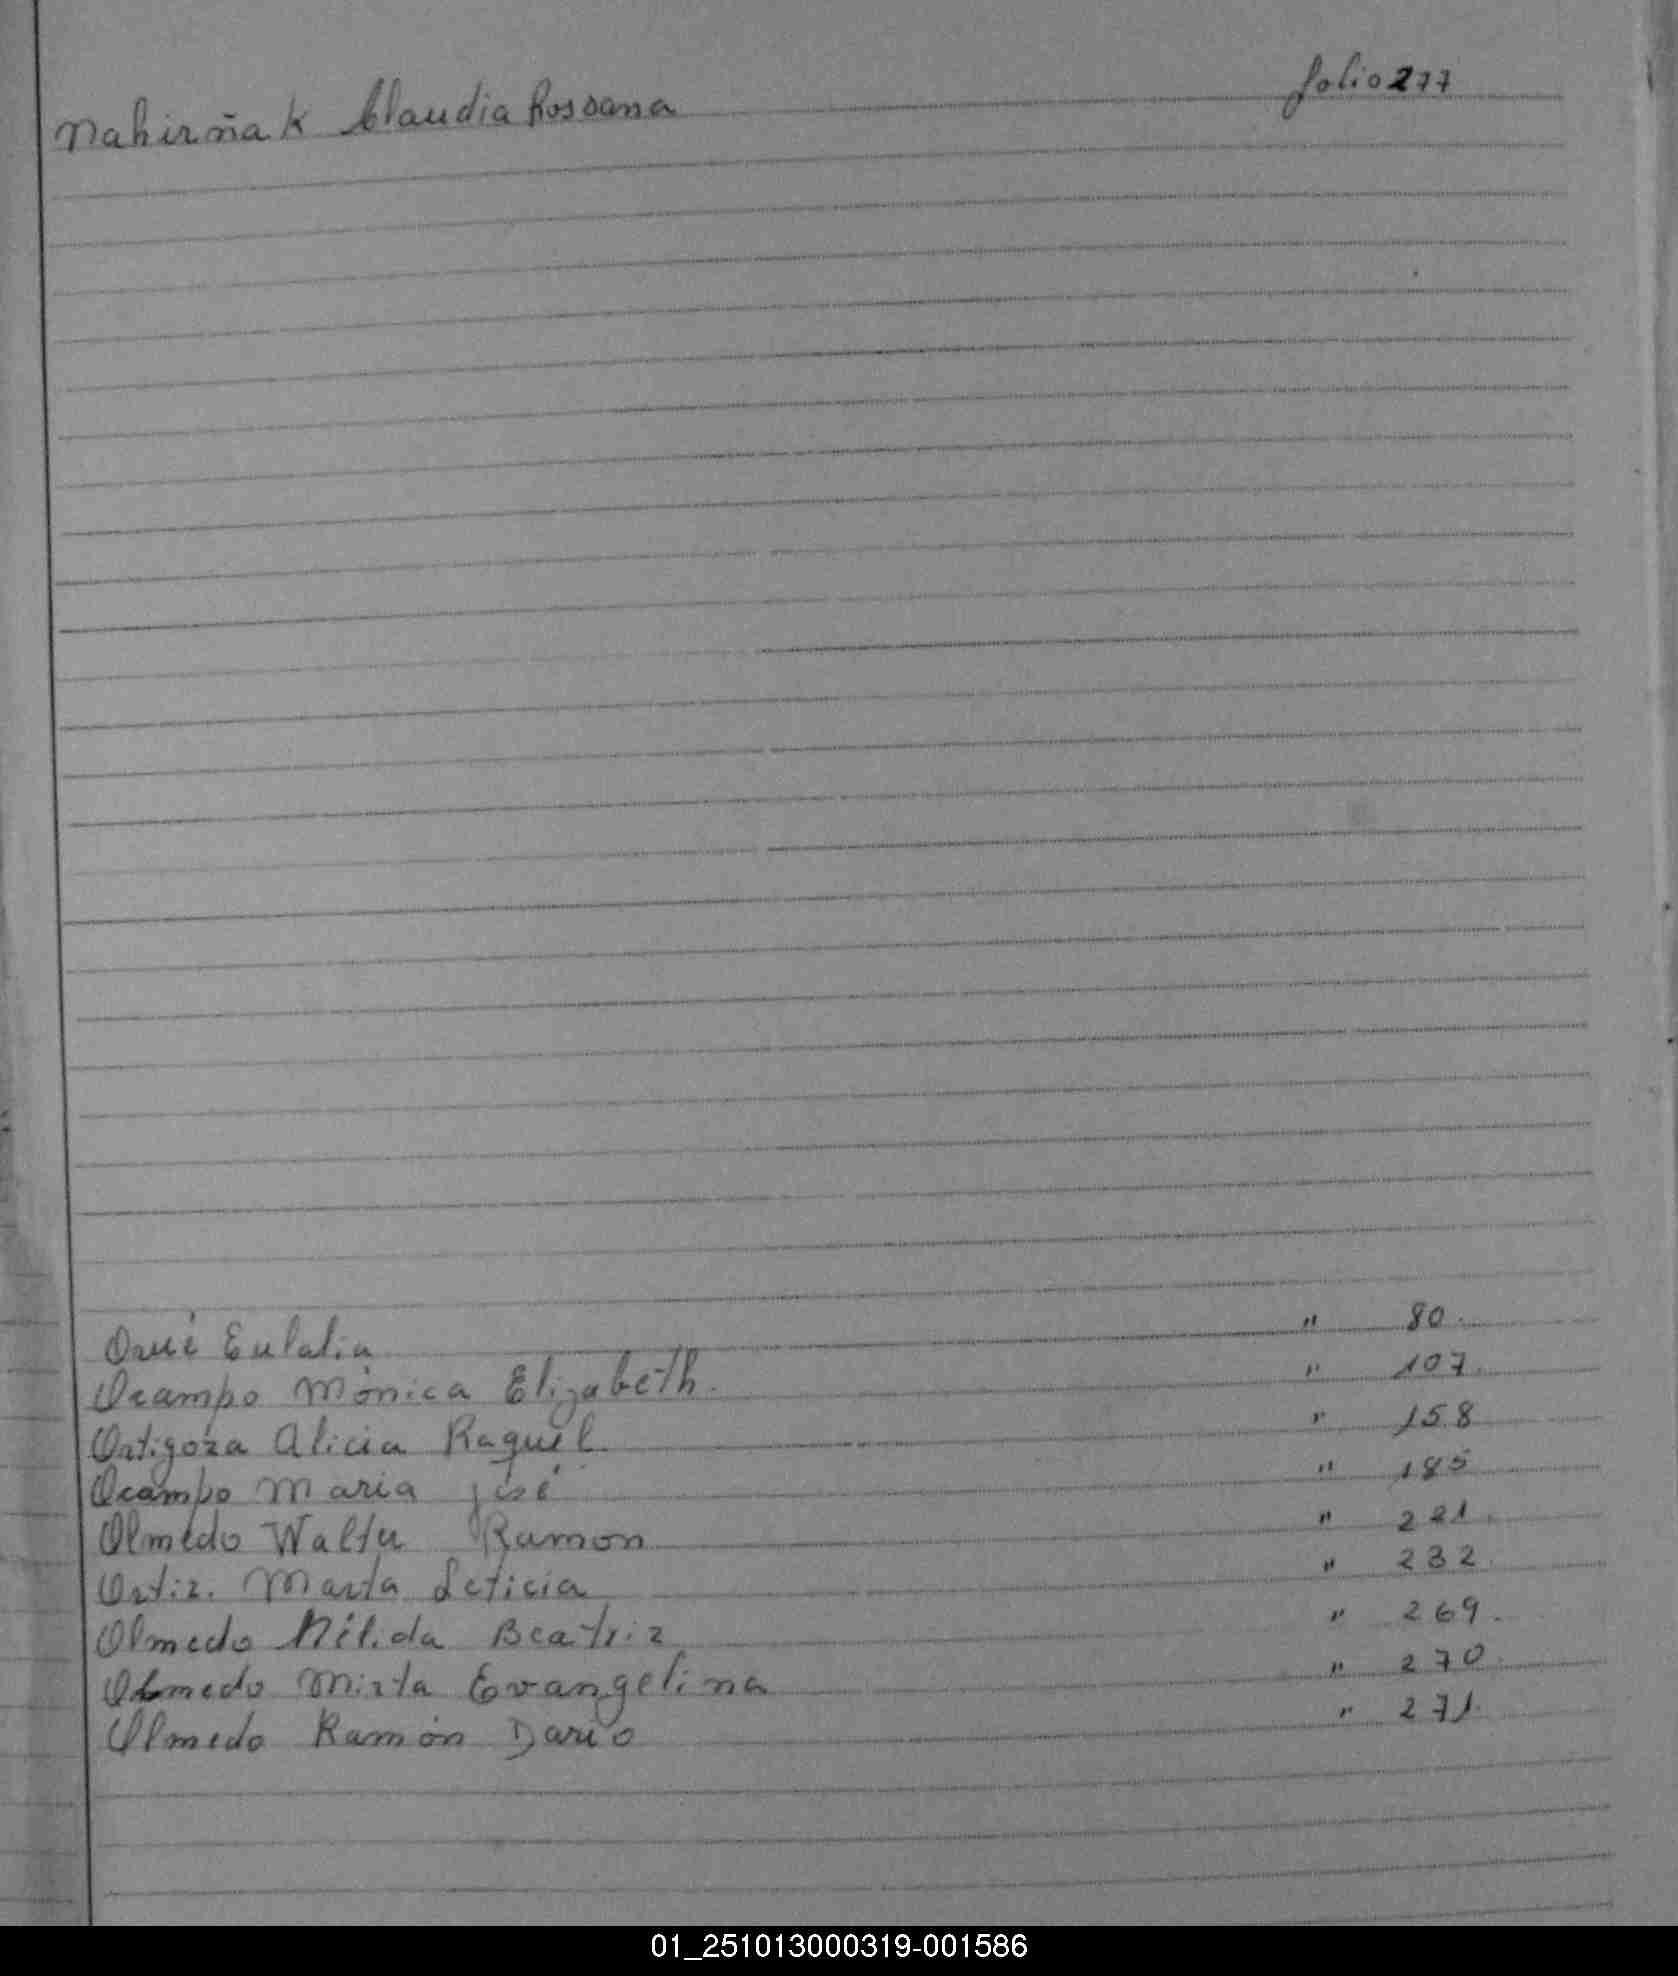 Nahirñak Claudia Rossana folio 277
Orué Eulalia " 80.
Ocampo Mónica Elizabeth. " 107.
Ortigoza Alicia Raquel " 158
Ocampo Maria José " 185
Olmedo Walter Ramon " 221.
Ortiz. Marta Leticia " 232.
Olmedo Nélida Beatriz " 269.
Olmedo Mirta Evangelina " 270.
Olmedo Ramón Darío " 271.
01_251013000319-001586